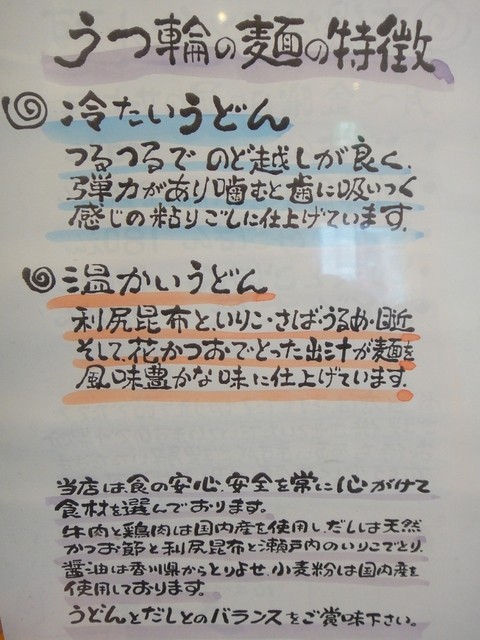 うつ輪の麺の特徴
冷たいうどん
つるつるでのど越しが良く、
弾力があり噛むと歯に吸いつく
感じの粘りごしに仕上げています。
温かいうどん
利尻昆布と、いりこ・さば・うるめ・目近
そして、花かつお・でとった出汁が麺を
風味豊かな味に仕上げています。
当店は、食の安心、安全を常に心がけて
食材を選んでおります。
牛肉と鶏肉は国内産を使用し、だしは天然
かつお節と利尻昆布と瀬戸内のいりこでとり、
醤油は香川県からとりよせ、小麦粉は国内産を
使用しております。
うどんとだしとのバランスをご賞味下さい。